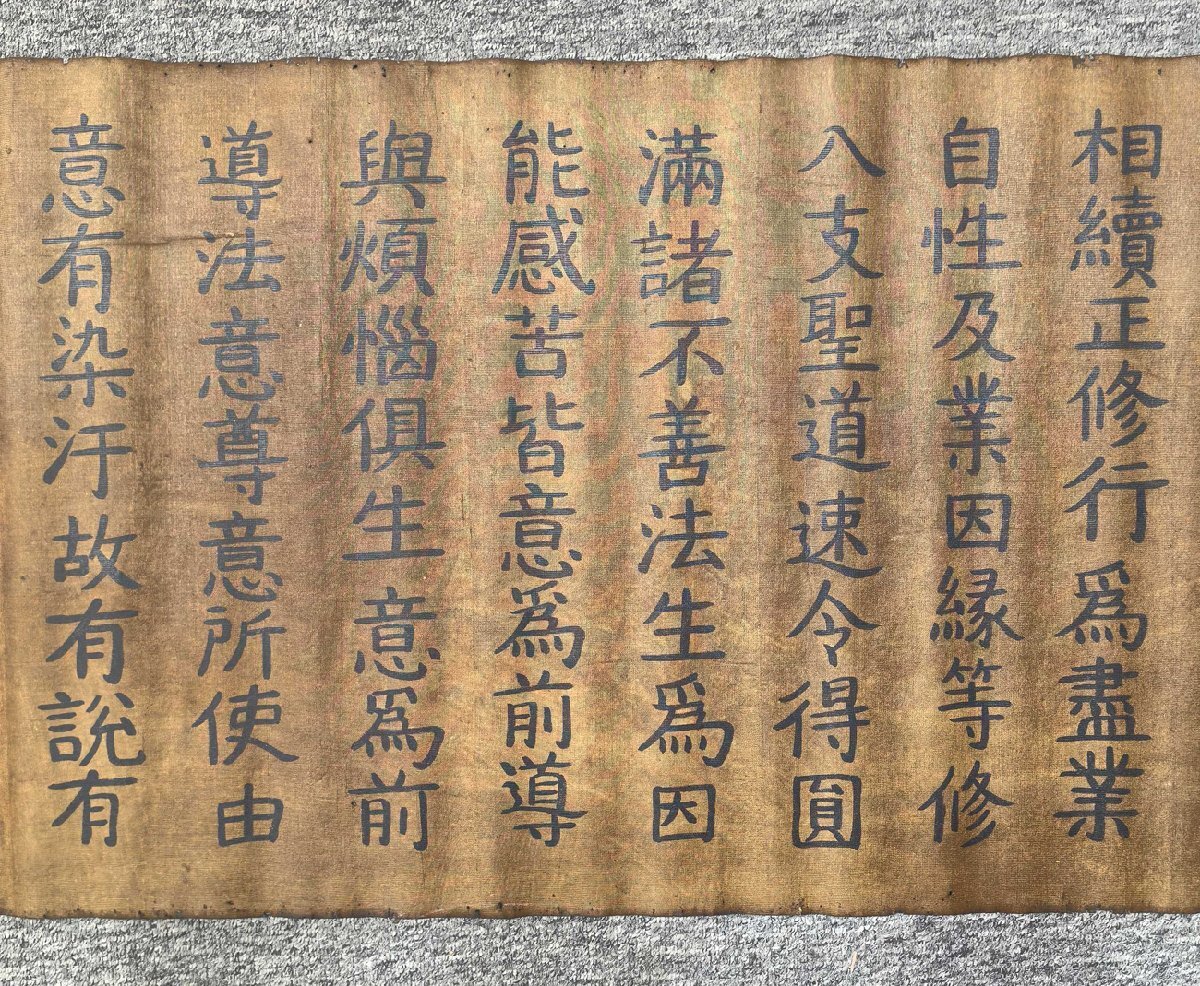 相續正修行爲盡業
自性及業因緣等修
八支聖道速令得圓
滿諸不善法生爲因
能感苦皆意爲前導
與煩惱俱生意爲前
導法意尊意所使由
意有染汙故有說有